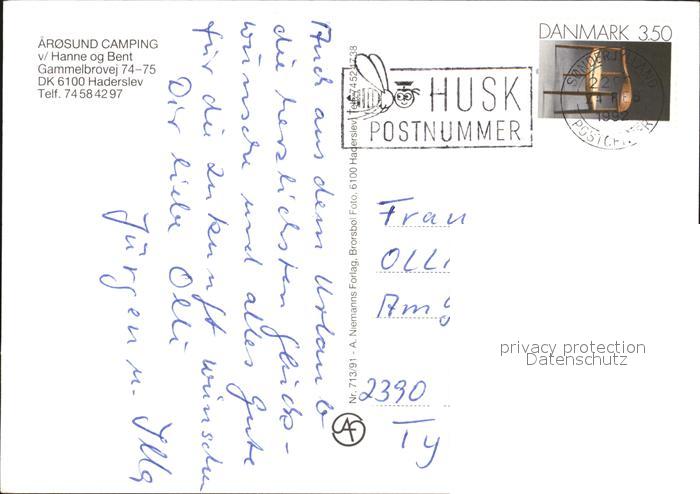 ÅRØSUND CAMPING
v/ Hanne og Bent
Gammelbrovej 74-75
DK 6100 Haderslev
Telf. 74 58 42 97
Auch aus dem Urlaub
die herzlichsten Glück-
wünsche und alles Gute
für die Zukunft wünschen
Dir liebe Olli
Jürgen u. Illa
Nr. 713/91 - A. Niemanns Forlag, Brorsbøl Foto, 6100 Haderslev
HUSK
POSTNUMMER
DANMARK 3.50
SØNDERJYLLAND
1992
POSTCENTER
Frau
OLLI
Am
2390
Ty
privacy protection
Datenschutz